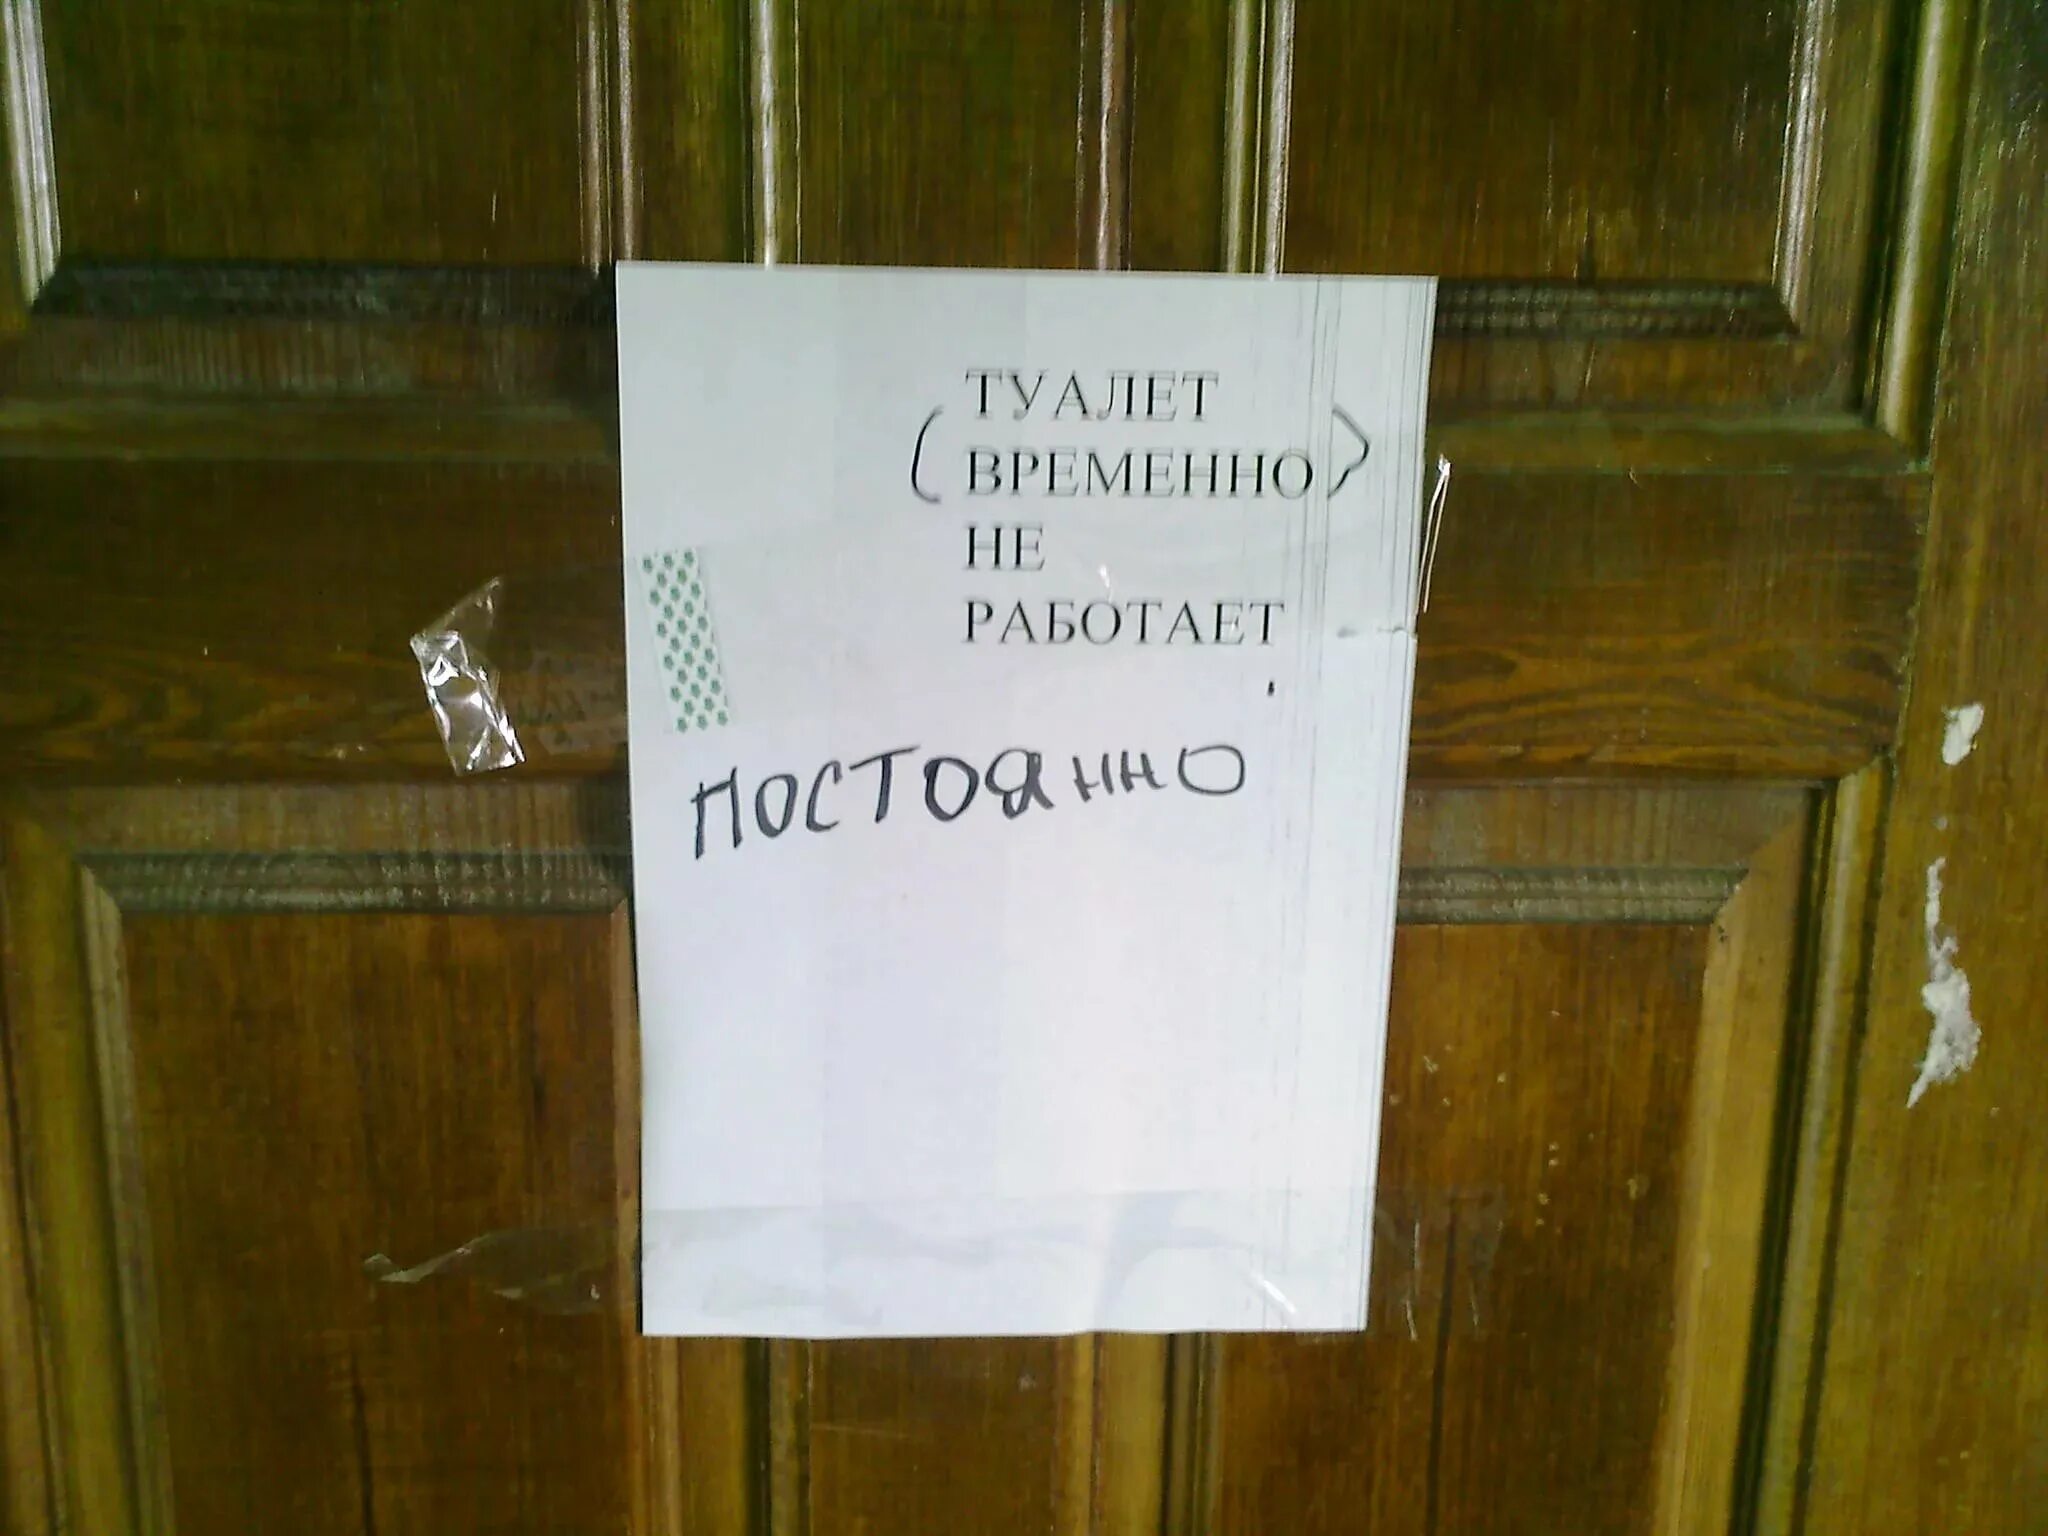 ТУАЛЕТ
(ВРЕМЕННО)
НЕ
РАБОТАЕТ
ПОСТОЯННО